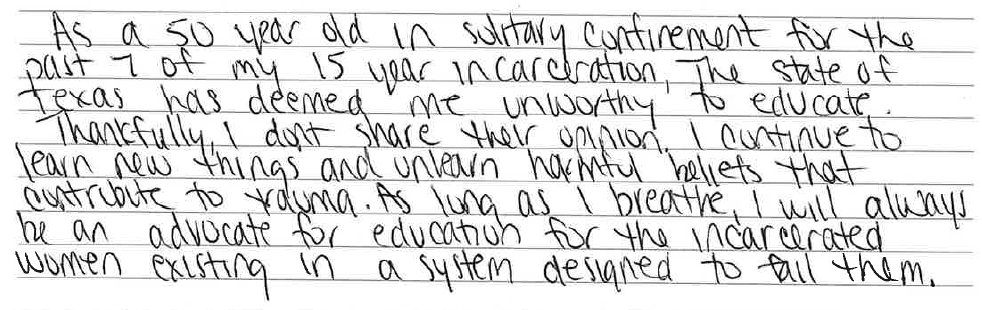 As a 50 year old in solitary confinement for the
past 7 of my 15 year incarceration, The state of
Texas has deemed me unworthy to educate.
Thankfully, I dont share their opinion. I continue to
learn new things and unlearn harmful beliefs that
contribute to trauma. As long as I breathe, I will always
be an advocate for education for the incarcerated
women existing in a system designed to fail them.